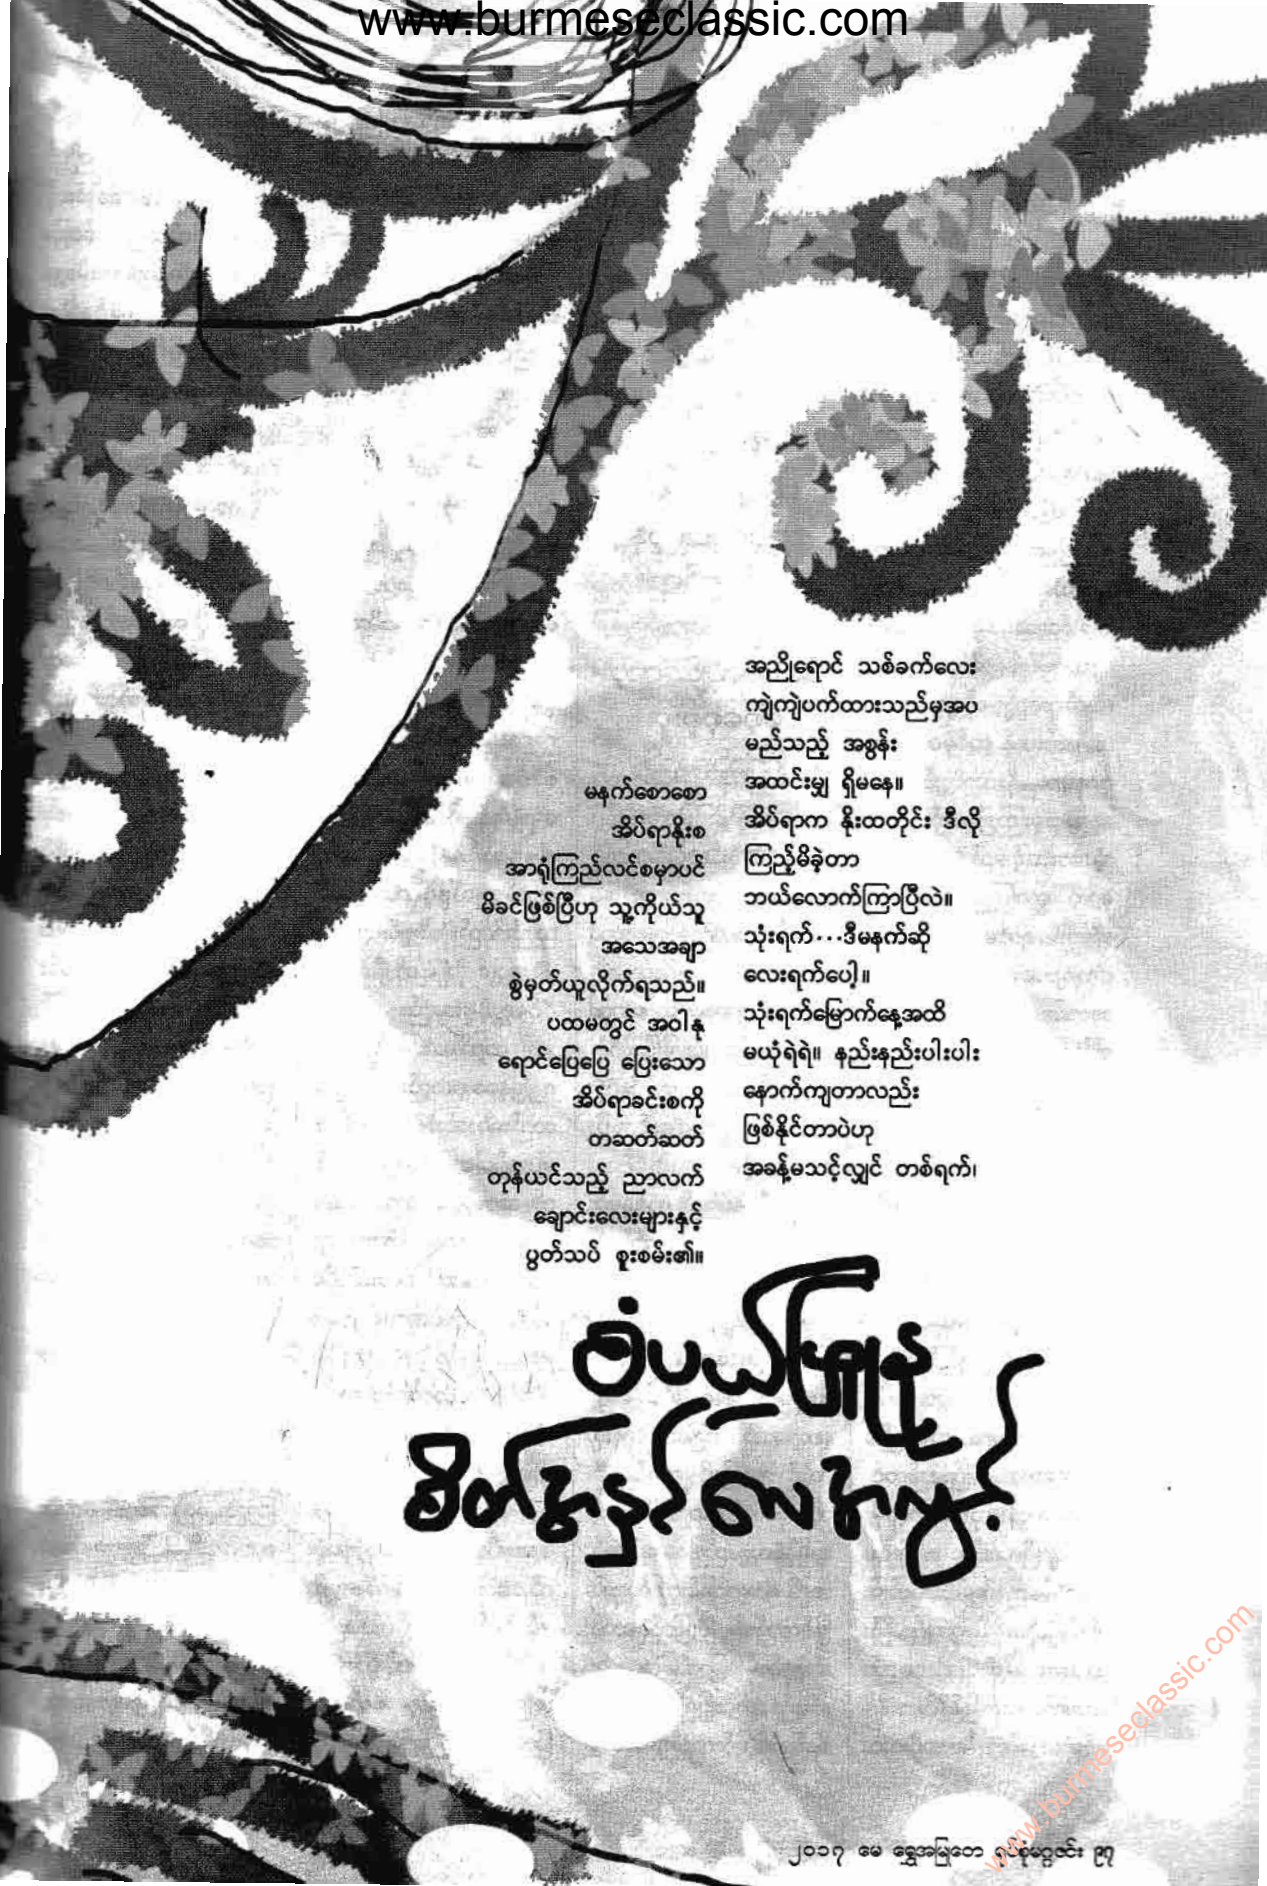 www.burmeseclassic.com
မနက်စောစော
အိပ်ရာနိုးစ
အာရုံကြည်လင်စမှာပင်
မိခင်ဖြစ်ပြီဟု သူ့ကိုယ်သူ
အသေအချာ
စွဲမှတ်ယူလိုက်ရသည်။
ပထမတွင် အဝါနု
ရောင်ပြေပြေ ပြေးသော
အိပ်ရာခင်းစကို
တဆတ်ဆတ်
တုန်ယင်သည့် ညာလက်
ချောင်းလေးများနှင့်
ပွတ်သပ် စူးစမ်း၏။
အညိုရောင် သစ်ခက်လေး
ကျဲကျဲပက်ထားသည်မှအပ
မည်သည့် အစွန်း
အထင်းမျှ ရှိမနေ။
အိပ်ရာက နိုးထတိုင်း ဒီလို
ကြည့်မိခဲ့တာ
ဘယ်လောက်ကြာပြီလဲ။
သုံးရက်...ဒီမနက်ဆို
လေးရက်ပေါ့။
သုံးရက်မြောက်နေ့အထိ
မယုံရဲရဲ။ နည်းနည်းပါးပါး
နောက်ကျတာလည်း
ဖြစ်နိုင်တာပဲဟု
အခန့်မသင့်လျှင် တစ်ရက်၊
စံပယ်ဖြူနု
စိတ်အာနှင့် လေအလွင့်
၂၀၁၇ မေ ရွှေအမြုတေ ရုပ်စုံမဂ္ဂဇင်း ၉၇
www.burmeseclassic.com